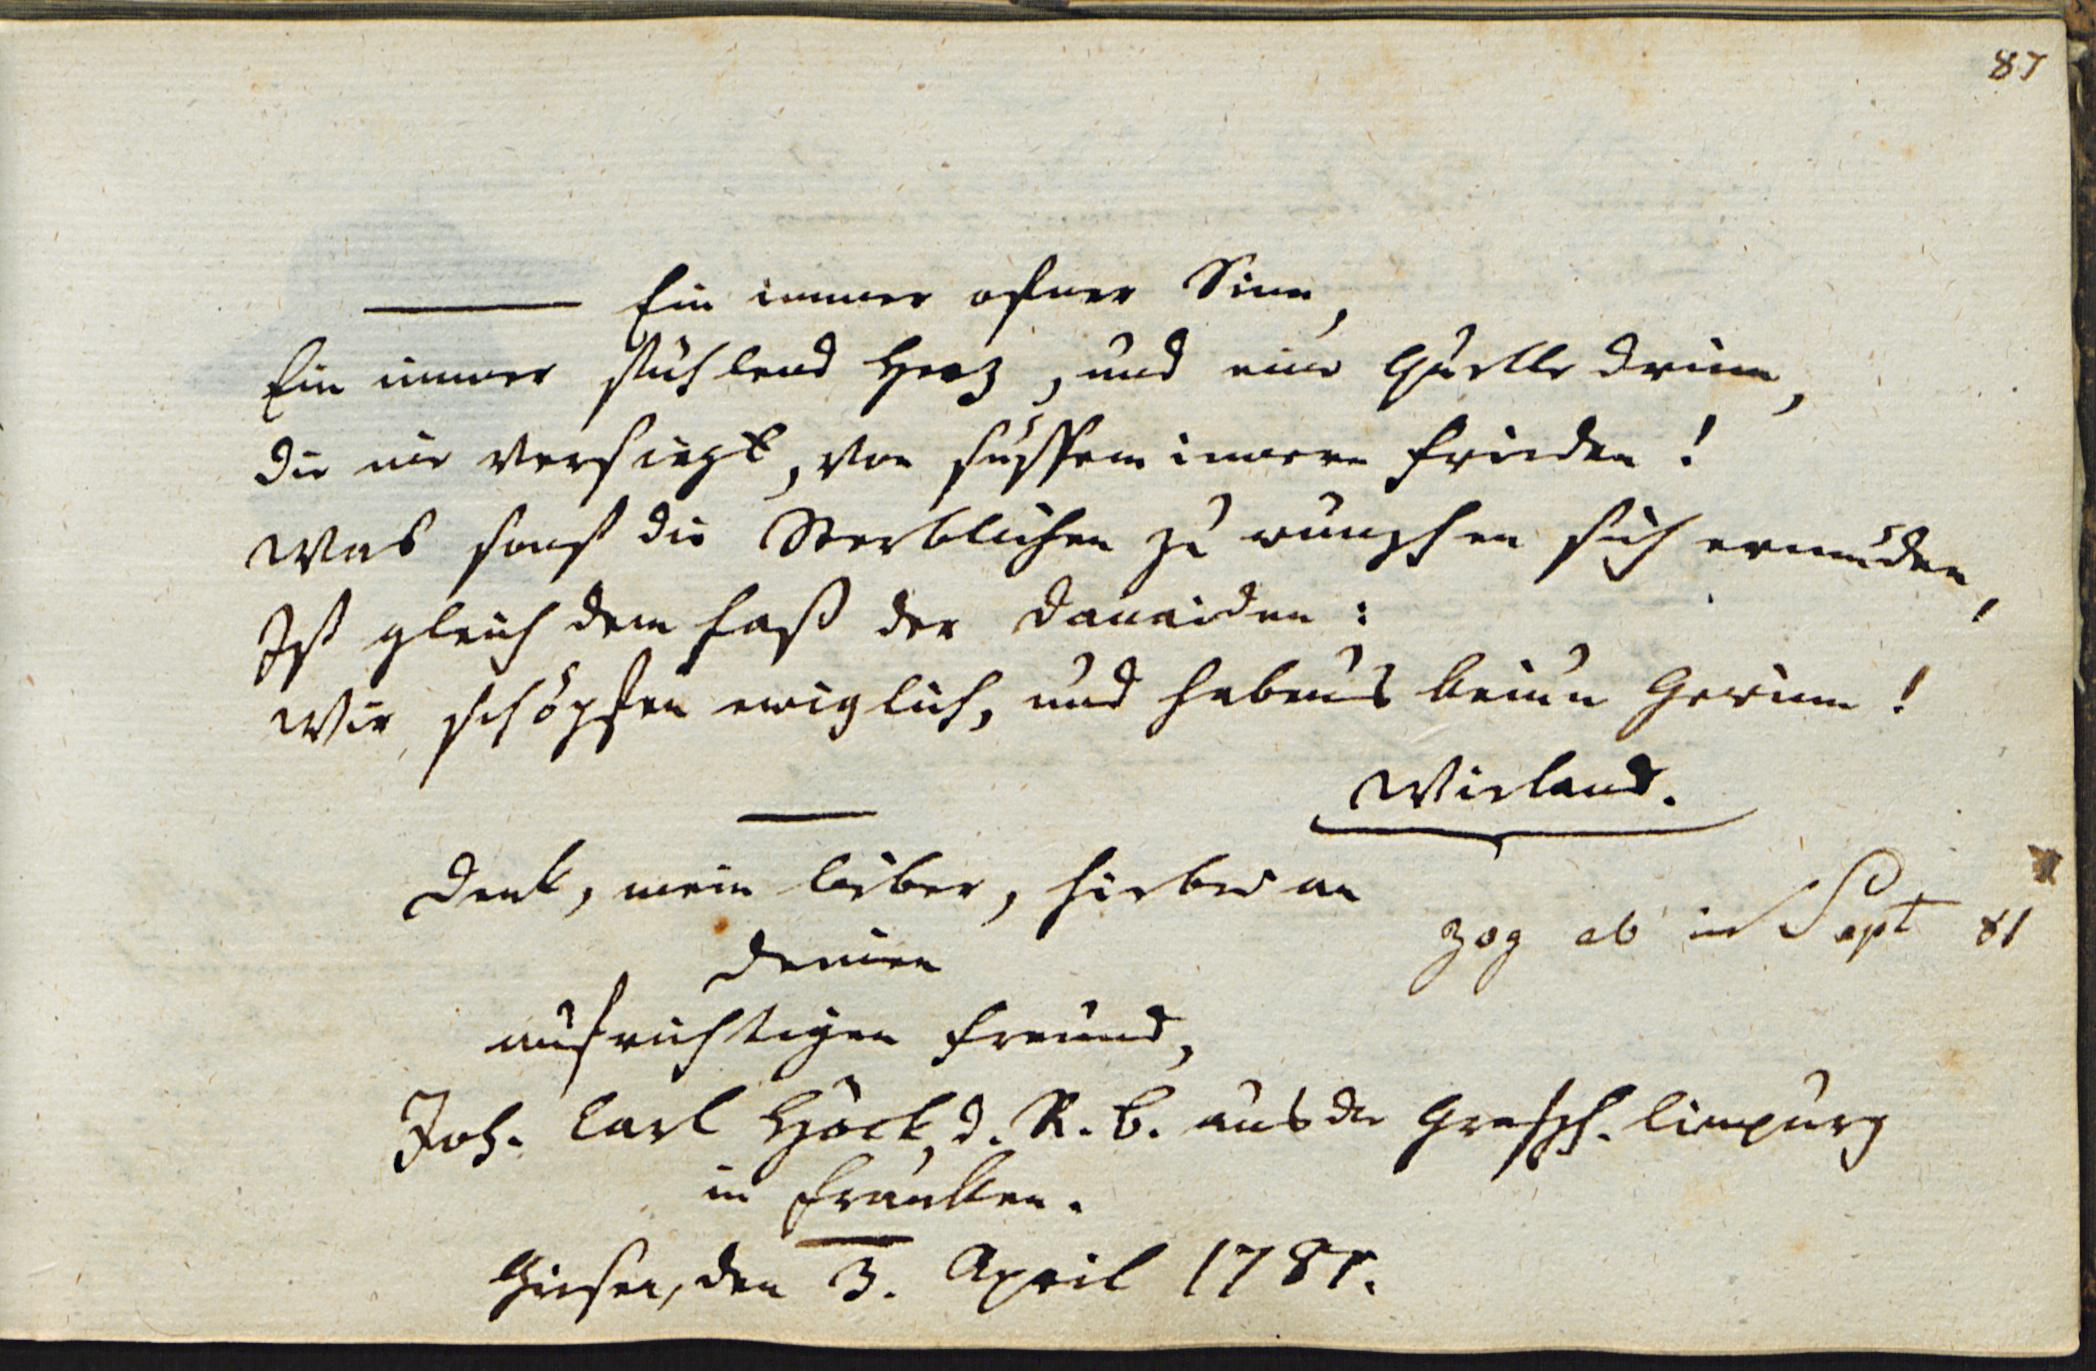 87
——— Ein immer ofner Sinn,
Ein immer fühlend Herz, und eine Quelle drinn,
die nie versiegt, von süssem innern Frieden!
Was sonst die Sterblichen zu wünschen sich ermüden,
Ist gleich dem Faß der Danaiden:
Wir schöpfen ewiglich, und haben's keinen Gewinn!
Wieland.
Denk, mein lieber, hierbei an
deinen
zog ab im Sept 81
aufrichtigen Freund,
Joh. Carl Höck, d. R. B. aus der Grafsch. Limpurg
in Franken.
Giesen, den 3. April 1781.